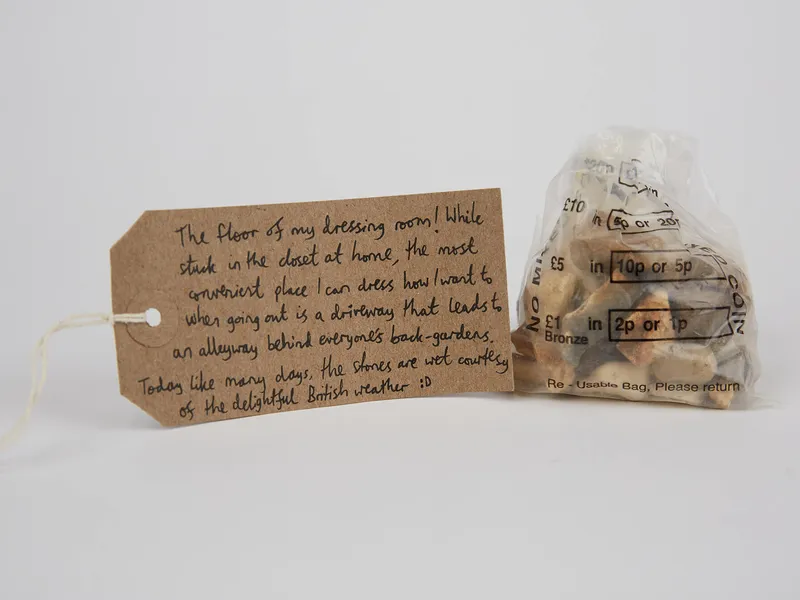 The floor of my dressing room! While
stuck in the closet at home, the most
convenient place I can dress how I want to
when going out is a driveway that leads to
an alleyway behind everyone's back-gardens.
Today like many days, the stones are wet courtesy
of the delightful British weather :D
£10 in 5p or 20p
£5 in 10p or 5p
£1 in 2p or 1p
Bronze
NO MI
ED COIN
Re - Usable Bag, Please return